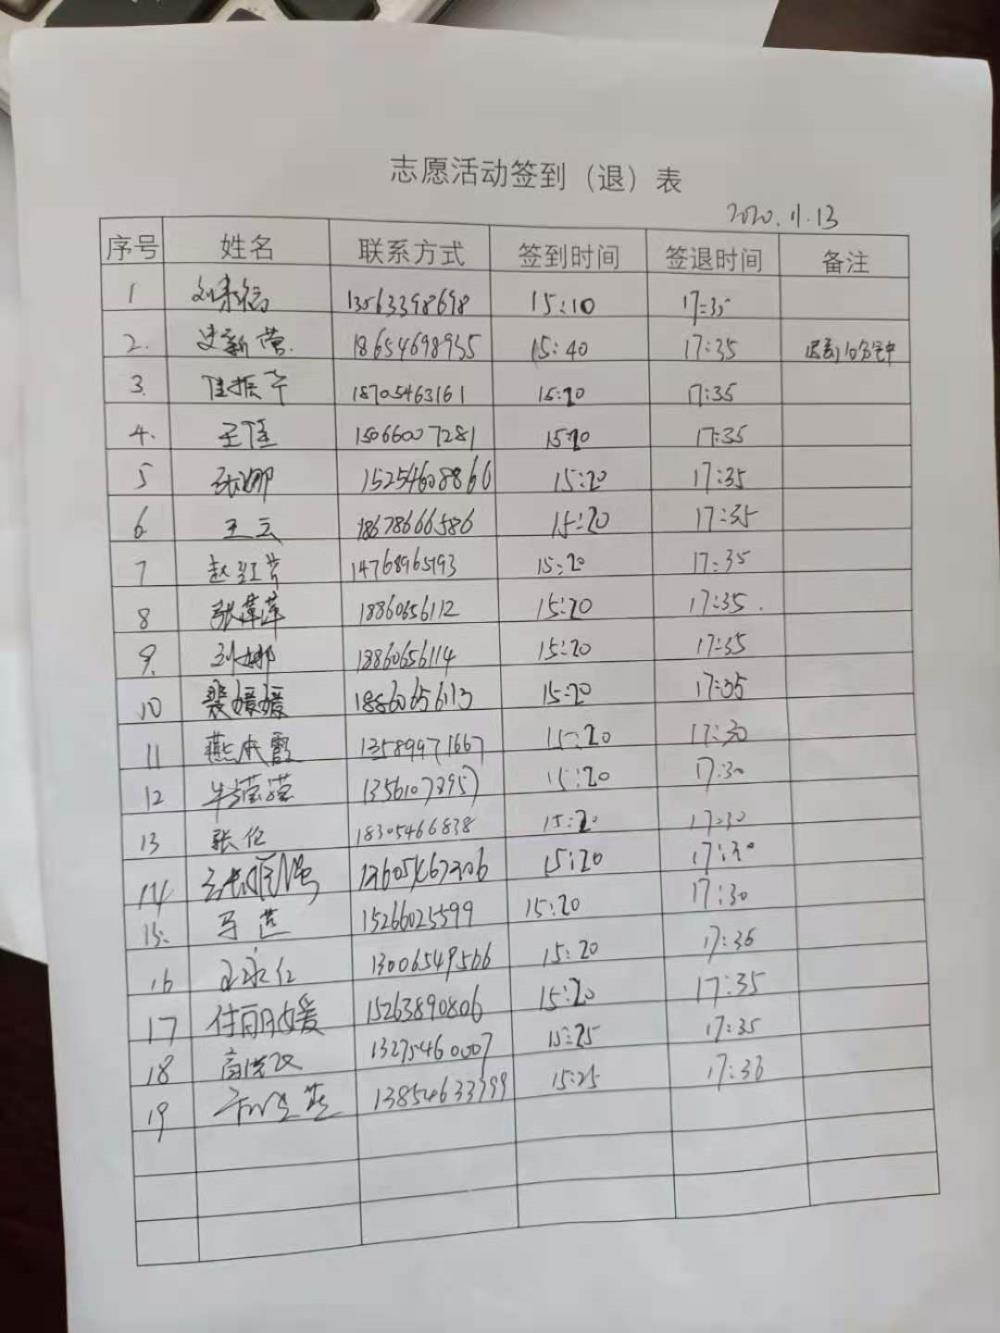 志愿活动签到（退）表
2020.11.13
序号 姓名 联系方式 签到时间 签退时间 备注
1 13563398698 15:10 17:35
2. 史新营. 18654698935 15:40 17:35 迟到10分钟
3. 佳振华 18705463161 15:20 17:35
4. 王佳 15066007281 15:20 17:35
5 张娜 15254608866 15:20 17:35
6. 王云 18678666586 15:20 17:35
7 赵红芳 14768965193 15:20 17:35
8 张萍萍 18860656112 15:20 17:35.
9. 刘娜 18860656114 15:20 17:35
10 裴媛媛 18860656113 15:20 17:35
11 燕成霞 13589971667 15:20 17:30
12 牛蒙蒙 13561073957 15:20 17:30
13 张伦 18305466838 15:20 17:30
14 15:20 17:30
15. 马莲 15266025599 15:20 17:30
16 王永红 13006549566 15:20 17:36
17 任丽媛 15263890806 15:20 17:35
18 13275460007 15:25 17:35
19 13854633999 15:25 17:36